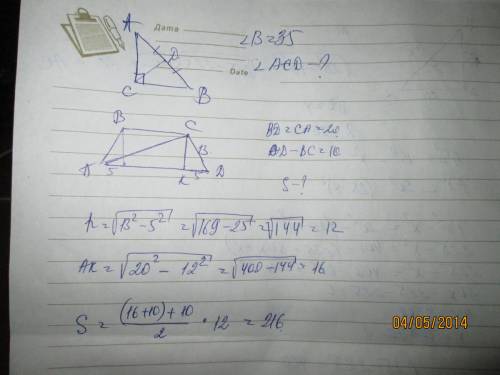 Дата
Date
A
D
C
B
∠B=35
∠ACD-?
B
C
13
A
5
K
5
D
BD=CA=20
AD-BC=10
S-?
h=√13²-5² = √169-25 = √144 = 12
AK=√20²-12² = √400-144 = 16
S = (16+10)+10 / 2 · 12 = 216
04/05/2014